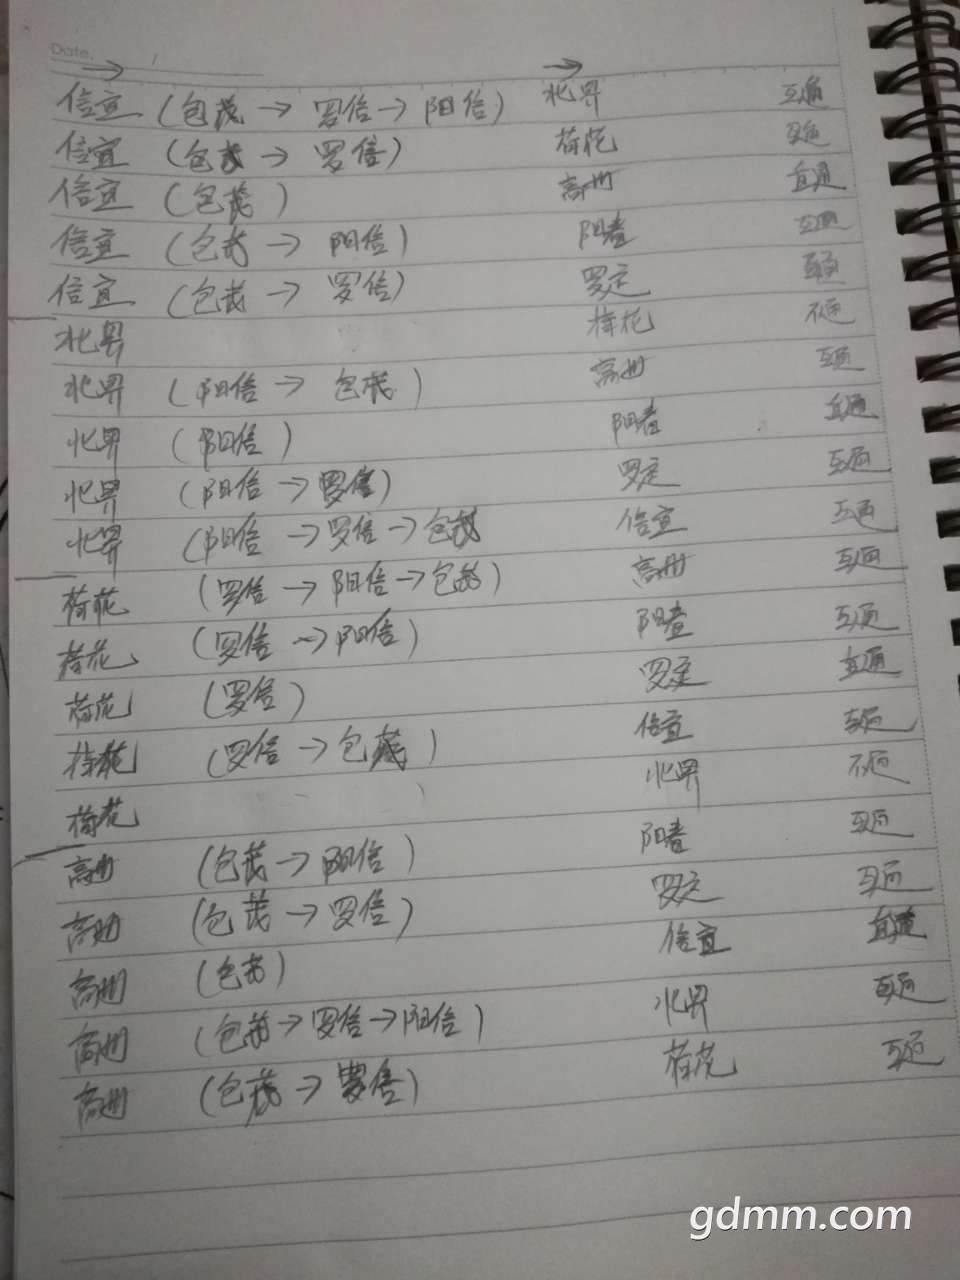 Date.
→ →
信宜 (包茂→罗信→阳信) 北界 互通
信宜 (包茂→罗信) 荷花 互通
信宜 (包茂) 高州 直通
信宜 (包茂→阳信) 阳春 互通
信宜 (包茂→罗信) 罗定 互通
北界 荷花 不通
北界 (阳信→包茂) 高州 互通
北界 (阳信) 阳春 直通
北界 (阳信→罗信) 罗定 互通
北界 (阳信→罗信→包茂 信宜 互通
荷花 (罗信→阳信→包茂) 高州 互通
荷花 (罗信→阳信) 阳春 互通
荷花 (罗信) 罗定 直通
荷花 (罗信→包茂) 信宜 互通
荷花 北界 不通
高州 (包茂→阳信) 阳春 互通
高州 (包茂→罗信) 罗定 互通
高州 (包茂) 信宜 直通
高州 (包茂→罗信→阳信) 北界 互通
高州 (包茂→罗信) 荷花 互通
gdmm.com